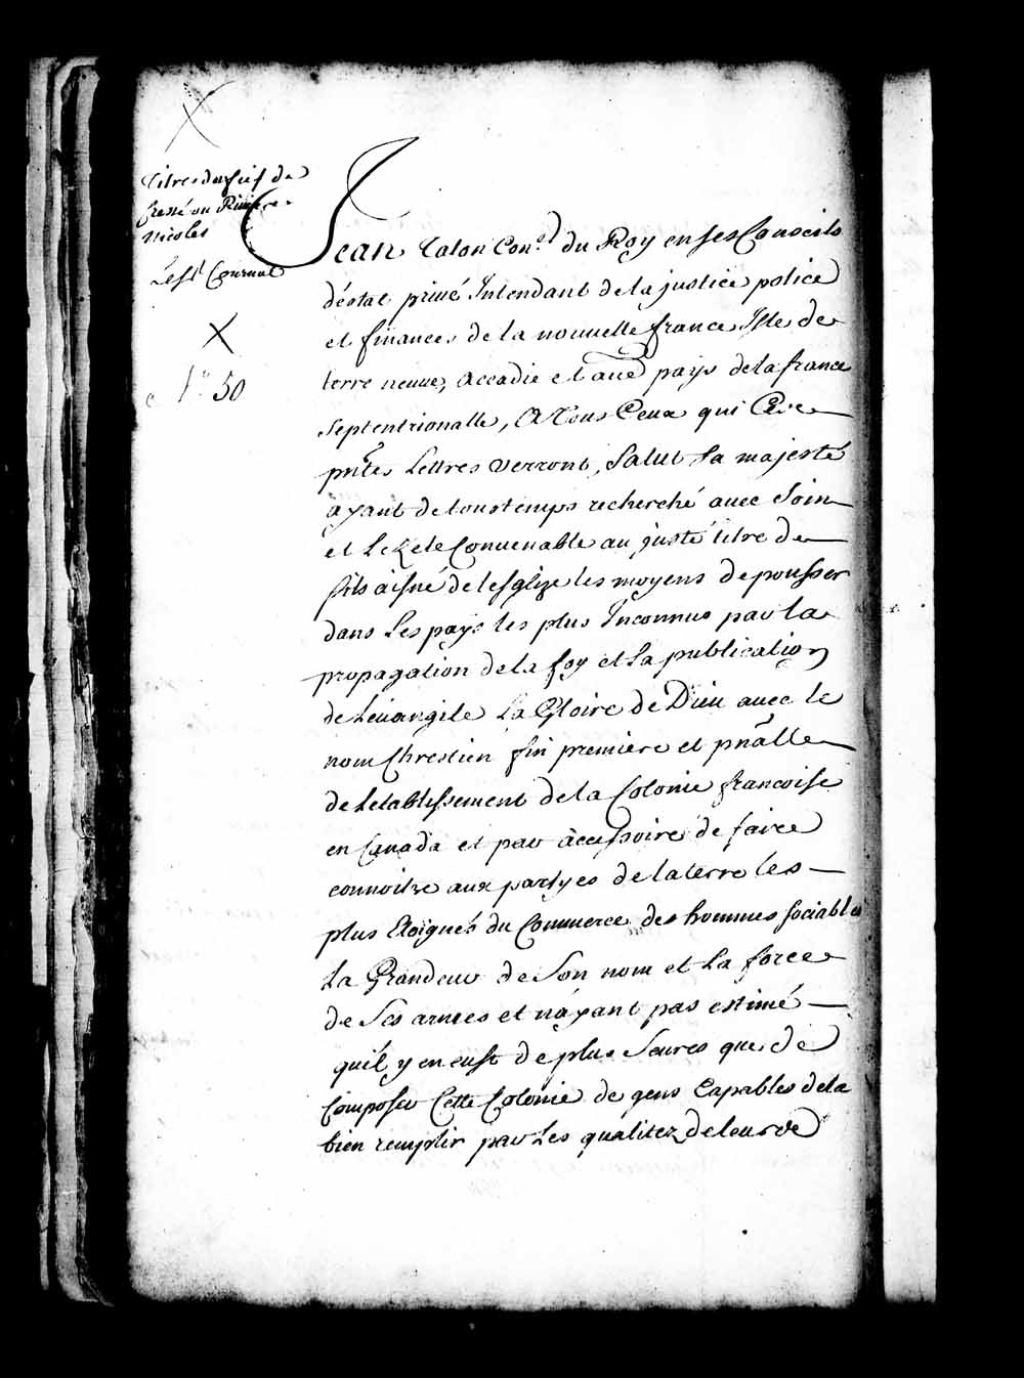 Titres du fief de
Cressé ou Riviere
Nicolet
Le Sr Cournal
N° 50
Jean Talon Coner du Roy en ses Conseils
déstat privé Intendant de la justice police
et finances de la nouvelle france Isle de
terre neuve, accadie et autres pays de la france
septentrionalle, A Tous Ceux qui Ces
pntes Lettres verront, Salut Sa majesté
ayant de tous temps recherché avec Soin
et Le Zele Convenable au juste titre de
fils aisné de lesglize les moyens de pousser
dans Les pays les plus Inconnus par la
propagation de la foy et La publication
de Lévangile La Gloire de Dieu avec le
nom Chrestien fin premiere et pñalle
de Letablissement de la Colonie francoise
en Canada et par accessoire de faire
connoitre aux partyes de la terre les
plus Eloignés du Commerce des hommes sociables
La Grandeur de Son nom et La force
de Ses armes et n'ayant pas estimé
quil y en eust de plus Seures que de
Composer Cette Colonie de gens Capables de la
bien remplir par Les qualitez de leur